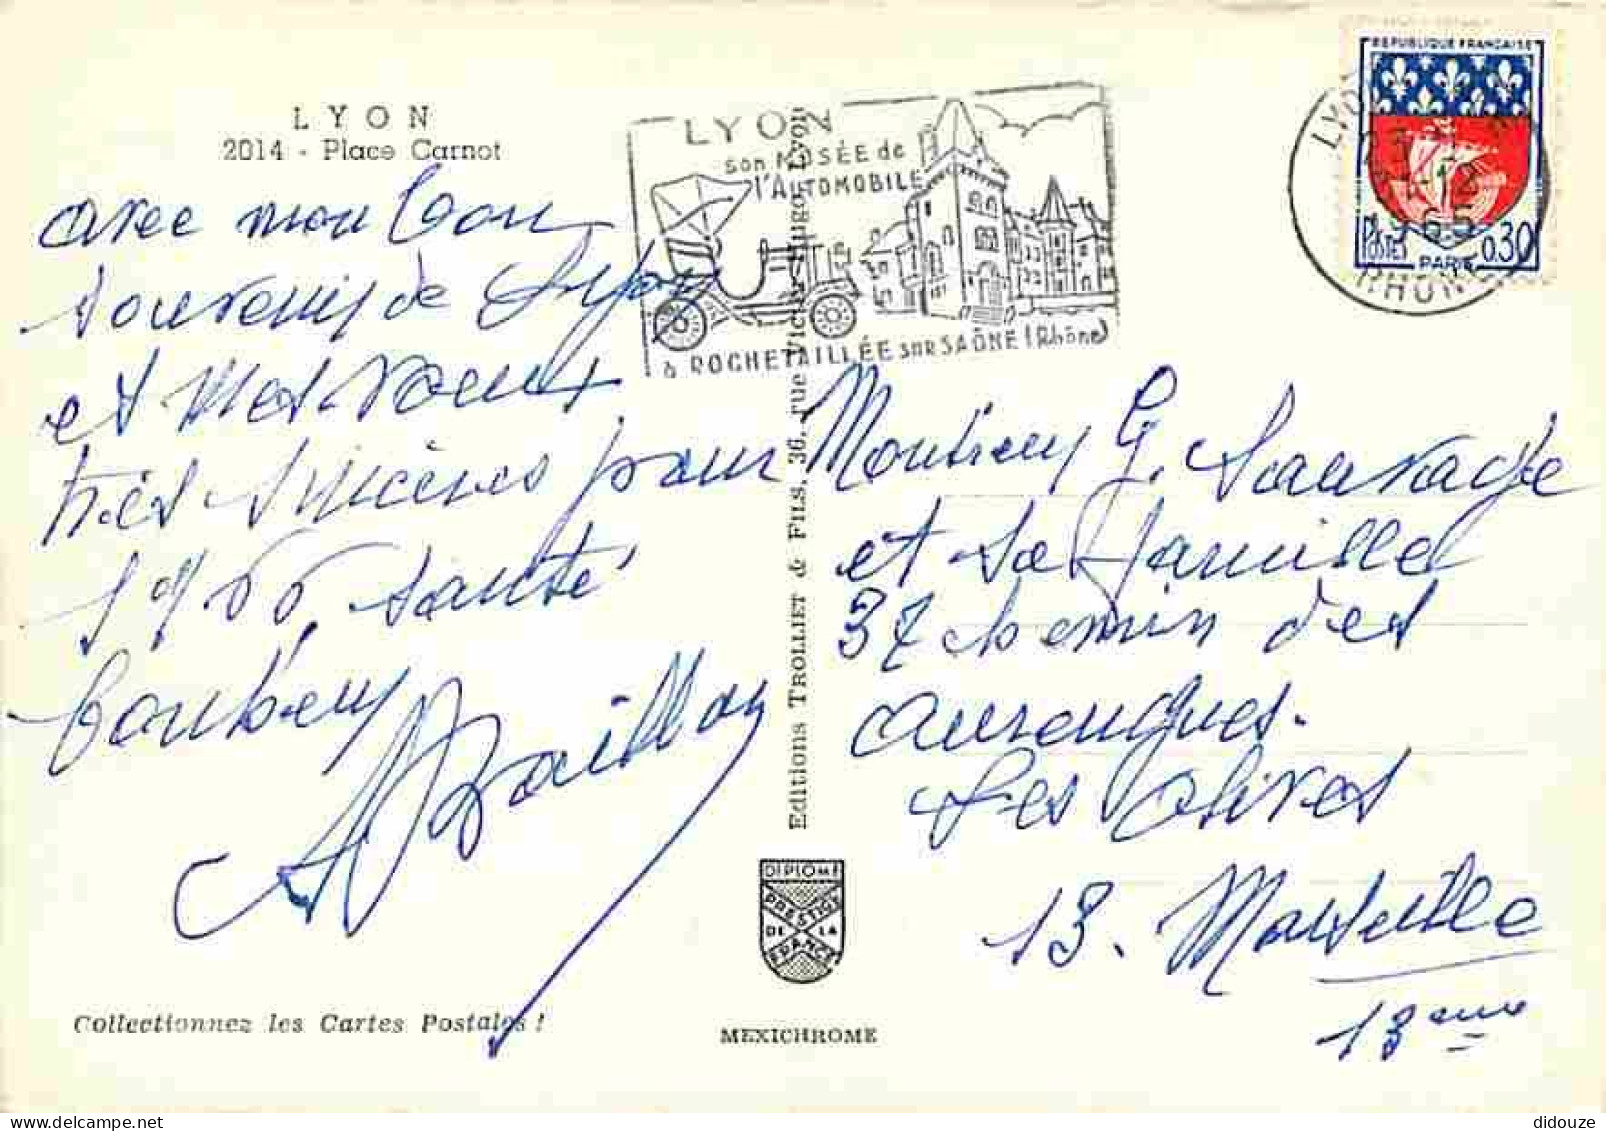 LYON
2014 - Place Carnot
avec mon bon
souvenir de Lyon
et mes vœux
très sincères pour
1966 santé
bonheur
Collectionnez les Cartes Postales !
Editions TROLLIET & FILS, 36, rue Victor-Hugo, Lyon
DIPLOME
PRESTIGE
DE LA
FRANCE
MEXICHROME
LYON
son MUSÉE de
l'AUTOMOBILE
à ROCHETAILLÉE SUR SAÔNE (Rhône)
REPUBLIQUE FRANÇAISE
POSTES
PARIS
0,30
LYON
-12
1965
RHONE
Monsieur G. Sauvage
et sa famille
37 chemin des
aurengues.
Les olives
13. Marseille
13eme
didouze